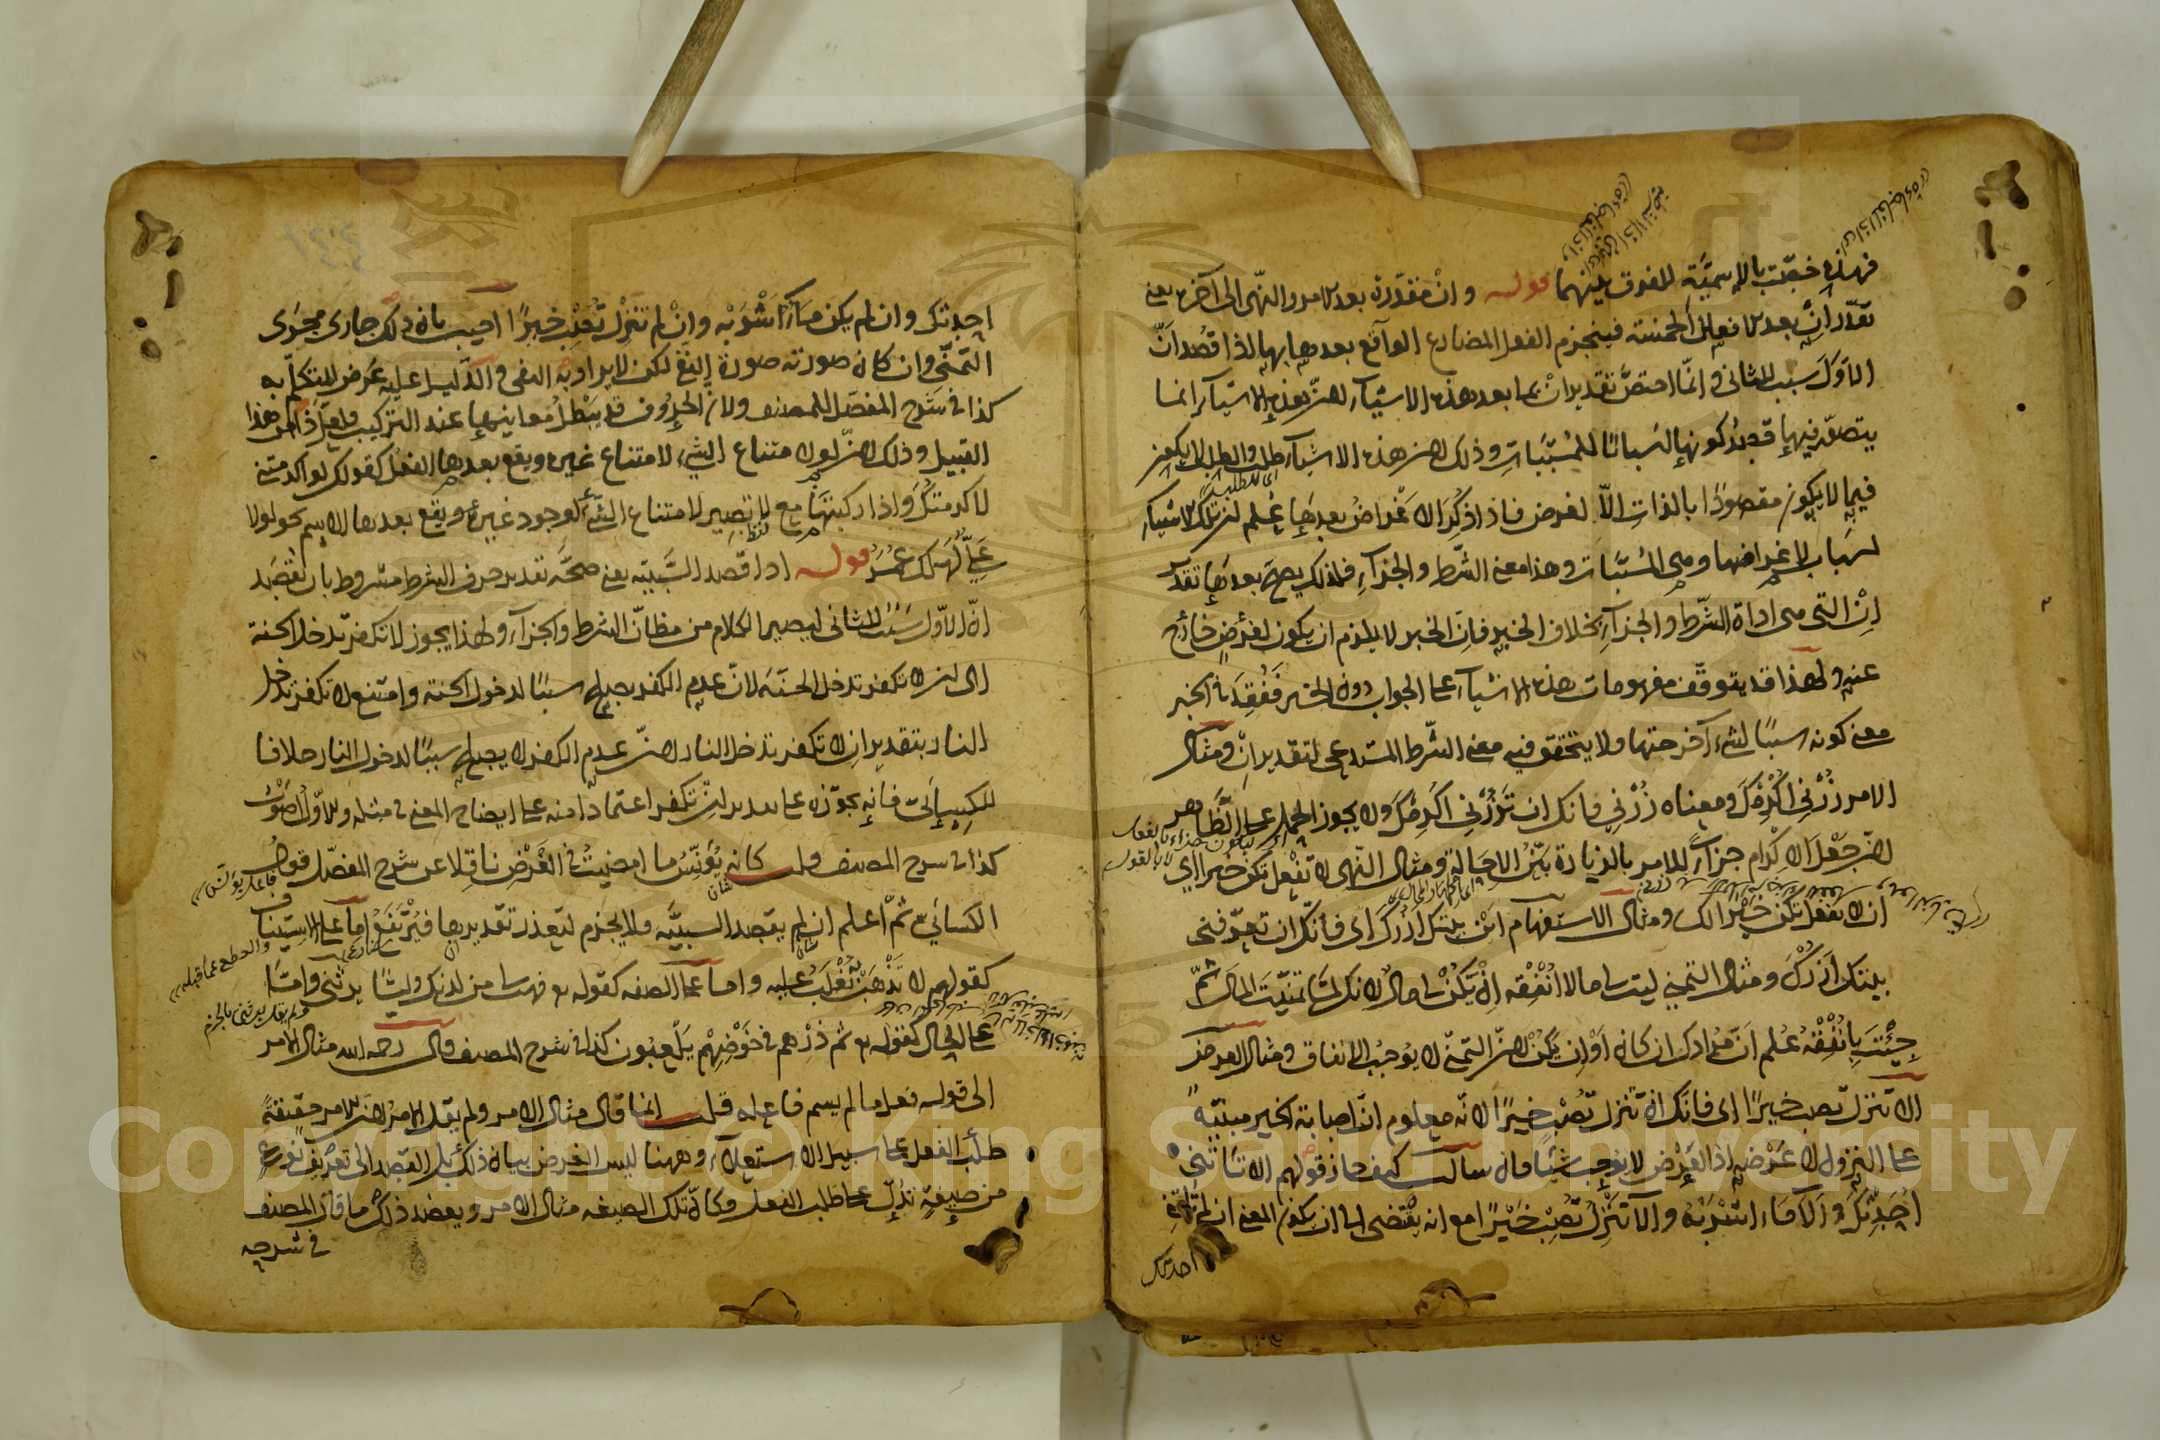 فهذه خصّت بالاسميّة للفرق بينهما قوله وانْ مقدّرة بعد الامر والنهي الى آخره يعني
تقدّر اِنْ بعد الافعال الخمسة فينجزم الفعل المضارع الواقع بعدها بها اذا قُصد انّ
الاوّل سبب للثاني وانّما اختصّ تقدير انْ بما بعد هذه الاشياء لانّ هذه الاشياء انما
يتصوّر فيها قصدُ كونها اسبابًا للمسبَّبات وذلك لانّ هذه الاشياء طلب والطلب لا يكون
فيما لا يكون مقصودًا بالذات الاّ لغرض فاذا ذُكِرَ الاغراضُ بعدها عُلم انّ تلك الاشياء
اسباب لاغراضها وهي المسبَّبات وهذا معنى الشرط والجزاءِ فلذلك يصحّ بعدها تقدير
اِنْ التي هي اداة الشرط والجزاءِ بخلاف الخبر فانّ الخبر لا يلزم ان يكون لغرضٍ خارج
عنه ولهذا قد يتوقّف مفهومات هذه الاشياء على الجواب دون الخبر فَفُقِدَ في الخبر
معنى كونه سببًا لشيء آخر حتما ولا يتحقق فيه معنى الشرط المستدعى لتقدير اِنْ ومثال
الامر زُرْنِي اُكْرِمْكَ ومعناه زُرْنِي فانك ان تَزُرْنِي اُكْرِمْكَ ولا يجوز الحمل على الظاهر
لانّ جَعْل الاكْرام جزاءً للامر بالزيارة بَيِّنُ الاِحَالة ومثال النّهي لا تَفْعل تكن خيرا اي
ان لا تفعل تكن خيرًا لك ومثال الاستفهام اَيْنَ بيتك اَزُرْكَ اى فانّك ان تعرّفني
بيتك اَزُرْكَ ومثال التمني ليت لي مالا اُنْفِقْه اِنْ يَكُنْ لي مال لانك لمّا تمنّيت المال ثمّ
جِئْتَ بِاُنْفِقْهُ عُلم انّ مُرادك ان كان اَوْ اِن يكُنْ لانّ التمنّي لا يوجبُ الانفاق ومثال العرض
الا تنزل تصب خيرًا اى فانّك ان تنزل تُصِبْ خيرًا لانّه معلوم انّ اصابة الخير مبنيّة
على النزول لا عَرْضِه اذ العَرْض لا يوجب شيئا فان سالت كيف جاز قولهم الا تأتني
اُحَدِّثْكَ والا مَاءَ اَشْرَبْهُ والا تَنْزِلْ تُصِبْ خَيْرًا مع انه يقتضى الى ان يكون المعنى ان لم تأتني
احدثك
احدثك وان لم يكن ماءٌ اَشْرَبْه وانْ لم تنزلْ تُصِبْ خيرًا اجيب بان ذلك جارى مجرى
التمنّي وان كان صورته صورة النفي لكن لا يراد به النفي والدّليل عليه عَرض المتكلّم به
كذا في شرح المفصّل للمصنف ولانّ الحروف قد يَبْطُل معانيها عند التركيب ولعلّ ذا من هذا
القبيل وذلك لانّ لو لامتناع الشيء لامتناع غيره ويقع بعدها الفعل كقولك لو اكرمتني
لاكرمتك واذا ركبتَهَا مع لا تصير لامتناع الشيء لوجود غيره ويقع بعدها الاسم نحو لولا
عَلِيٌّ لَهَلَكَ عُمَرُ قوله اذا قصد السَّببيّة يعنى صحّة تقدير حرف الشرط مشروط بان يُقْصَد
انّ الاوّل سَبَبٌ للثانى ليصير الكلام من مظانّ الشرط والجزاء ولهذا يجوز لا تكفرْ تدخل الجنة
اى ان لا تكفر تدخل الجنّة لانّ عدم الكفر يصلح سببًا لدخول الجنة وامتنع لا تكفر تدخل
النار بتقدير اِن لا تكفر تدخل النار لانّ عدم الكفر لا يصلح سببًا لدخول النار خلافا
للكِسِائىّ فانه يجوّزه على تقدير ان تكفر اعتمادًا منه على ايضاح المعنى في مثله والاوّل اصْوَبُ
كذا في شرح المصنف قلت كانه يُؤَيِّسُ ما امضيتُ في الغَرْض ناقِلا عن شرح المفصّل قول
الكسائي ثمّ اعلم ان لم يقصد السببيّة فلا يجزم لتعذر تقديرها فيُرْتَفَعُ اما على الاستيناف
كقولهم لا تَذْهَبْ تُغْلَبُ عليه واما على الصفه كقوله تع فهب لى من لدنك وليًّا يرثُنى وامّا
على الحال كقوله تع ثم ذَرْهم في خَوْضِهِمْ يَلْعبون كذا في شرح المصنف قال رحمه الله مثال الامر
الى قوله فعل ما لم يسم فاعله قلت انما قال مثال الامر ولم يقل الامرُ لانّ الامر حقيقةً
طلَبُ الفعل على سبيل الاستعلاء وههنا ليس الغرض بيان ذلك بل القصد الى تعريف نوعٍ
من صيغةٍ تدُلّ على طلب الفعل وكانّ تلك الصيغه مثال الامر ويعضد ذلك ما قال المصنف
في شرحه